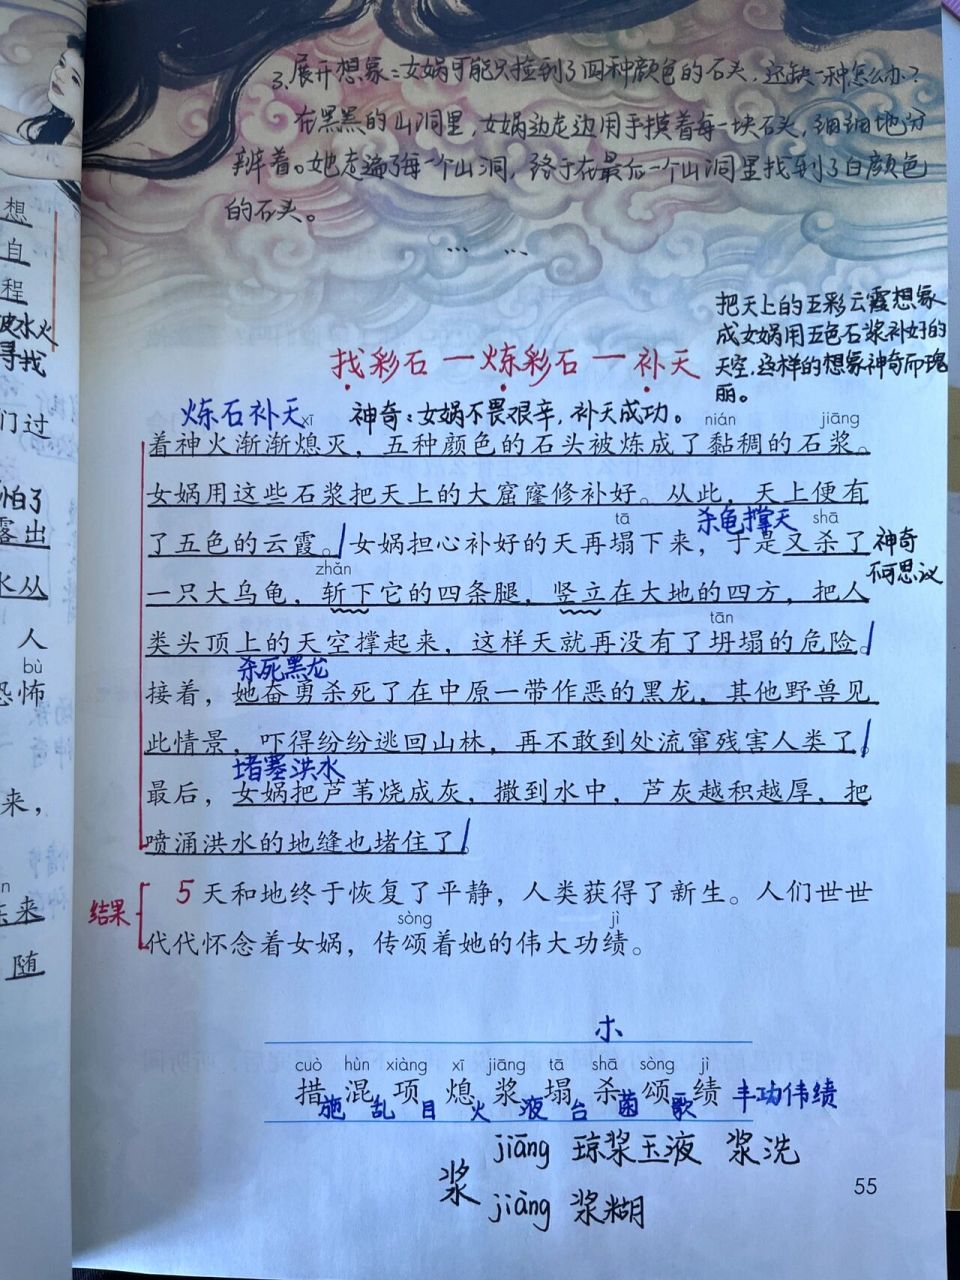 3.展开想象:女娲可能只捡到了四种颜色的石头,还缺一种怎么办?
在黑黑的山洞里,女娲边走边用手摸着每一块石头,细细地分
辨着。她走遍了每一个山洞,终于在最后一个山洞里找到了白颜色
的石头。
… …
把天上的五彩云霞想象
成女娲用五色石浆补好的
天空,这样的想象神奇而瑰
丽。
找彩石—炼彩石—补天
炼石补天 神奇:女娲不畏艰辛,补天成功。
xī nián jiāng
着神火渐渐熄灭,五种颜色的石头被炼成了黏稠的石浆。
女娲用这些石浆把天上的大窟窿修补好。从此,天上便有
tā 杀龟撑天 shā
了五色的云霞。女娲担心补好的天再塌下来,于是又杀了
神奇
不可思议
zhǎn
一只大乌龟,斩下它的四条腿,竖立在大地的四方,把人
tān
类头顶上的天空撑起来,这样天就再没有了坍塌的危险。
杀死黑龙
接着,她奋勇杀死了在中原一带作恶的黑龙,其他野兽见
此情景,吓得纷纷逃回山林,再不敢到处流窜残害人类了。
堵塞洪水
最后,女娲把芦苇烧成灰,撒到水中,芦灰越积越厚,把
喷涌洪水的地缝也堵住了。
结果
5 天和地终于恢复了平静,人类获得了新生。人们世世
sòng jì
代代怀念着女娲,传颂着她的伟大功绩。
朩
cuò hùn xiàng xī jiāng tā shā sòng jì
措 混 项 熄 浆 塌 杀 颂 绩 丰功伟绩
施 乱 目 火 液 台 菌 歌
jiāng 琼浆玉液 浆洗
浆
jiàng 浆糊
55
想
自
程
皮水火
寻找
们过
怕了
露出
水从
人
bù
恐怖
来,
来
随